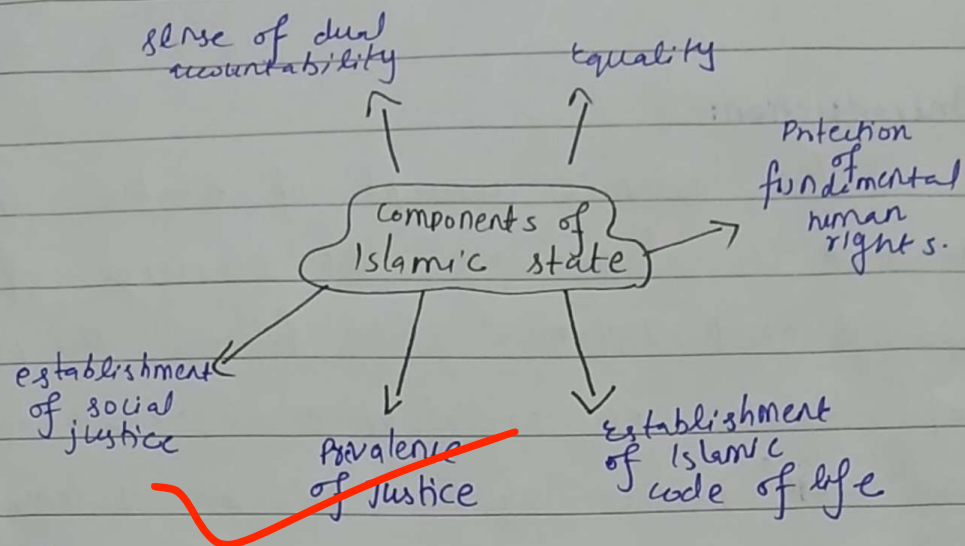 sense of dual
accountability
Equality
Protection
of
fundimental
human
rights.
Components of
Islamic state
establishment
of social
justice
Prevalence
of Justice
Establishment
of Islamic
code of life